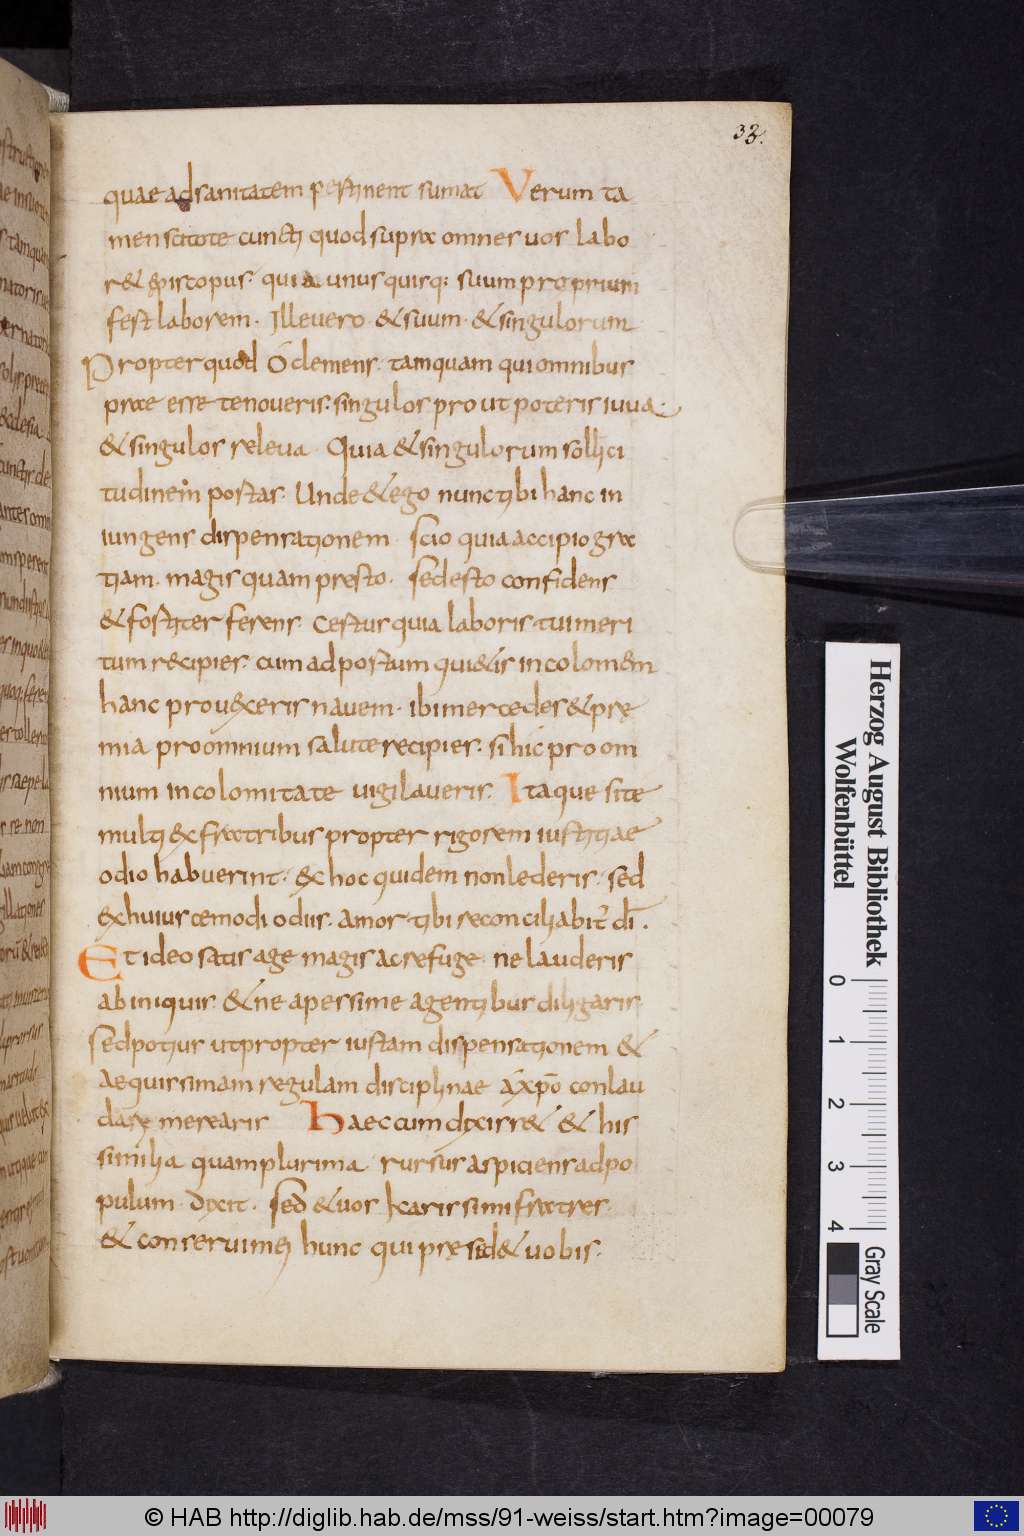 33.
quae ad sanitatem pertinent sumat Verum ta
men scitote cuncti quod supra omnes vos labo
r& episcopus. quia unusquisq; suum proprium
fert laborem. Ille vero & suum & singulorum
Propter quod O clemens. tamquam qui omnibus
prae esse te noveris. singulos prout poteris iuva.
& singulos releva. Quia & singulorum sollici
tudinem portas. Unde & ego nunc tibi hanc in
iungens dispensationem. scio quia accipio gra
tiam. magis quam presto. sed esto confidens
& fortiter ferens. Certus quia laboris tui meri
tum recipies. cum ad portum qui&is incolomem
hanc provexeris navem. ibi mercedes & prę
mia pro omnium salute recipies. si hic pro om
nium incolomitate vigilaveris. Itaque si te
multi ex fratribus propter rigorem iustitiae
odio habuerint. ex hoc quidem non lederis. sed
ex huiuscemodi odiis. amor tibi reconciliabit̃ dī.
Et ideo satis age magis ac refuge. ne lauderis
ab iniquis. & ne a pessime agentibus diligaris
sed potius ut propter iustam dispensationem &
aequissimam regulam disciplinae a xp̄o conlau
darę merearis Haec cum dixiss& & his
similia quamplurima. rursus aspiciens ad po
pulum. dixit. sed & vos karissimi fratres.
& conservi mei hunc qui prę sid& vobis.
Herzog August Bibliothek
Wolfenbüttel
0 1 2 3 4
Gray Scale
© HAB http://diglib.hab.de/mss/91-weiss/start.htm?image=00079